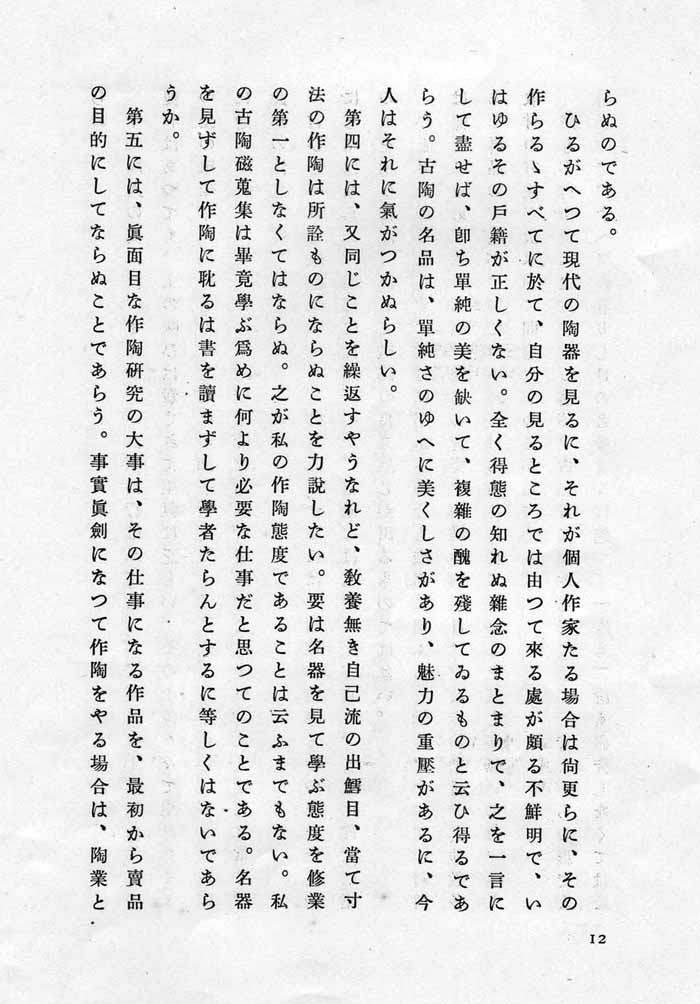 らぬのである。
ひるがへつて現代の陶器を見るに、それが個人作家たる場合は尙更らに、その
作らるゝすべてに於て、自分の見るところでは由つて來る處が頗る不鮮明で、い
はゆるその戶籍が正しくない。全く得態の知れぬ雜念のまとまりで、之を一言に
して盡せば、卽ち單純の美を缺いて、複雜の醜を殘してゐるものと云ひ得るであ
らう。古陶の名品は、單純さのゆへに美くしさがあり、魅力の重壓があるに、今
人はそれに氣がつかぬらしい。
第四には、又同じことを繰返すやうなれど、敎養無き自己流の出鱈目、當て寸
法の作陶は所詮ものにならぬことを力說したい。要は名器を見て學ぶ態度を修業
の第一としなくてはならぬ。之が私の作陶態度であることは云ふまでもない。私
の古陶磁蒐集は畢竟學ぶ爲めに何より必要な仕事だと思つてのことである。名器
を見ずして作陶に耽るは書を讀まずして學者たらんとするに等しくはないであら
うか。
第五には、眞面目な作陶硏究の大事は、その仕事になる作品を、最初から賣品
の目的にしてならぬことであらう。事實眞劍になつて作陶をやる場合は、陶業と
12